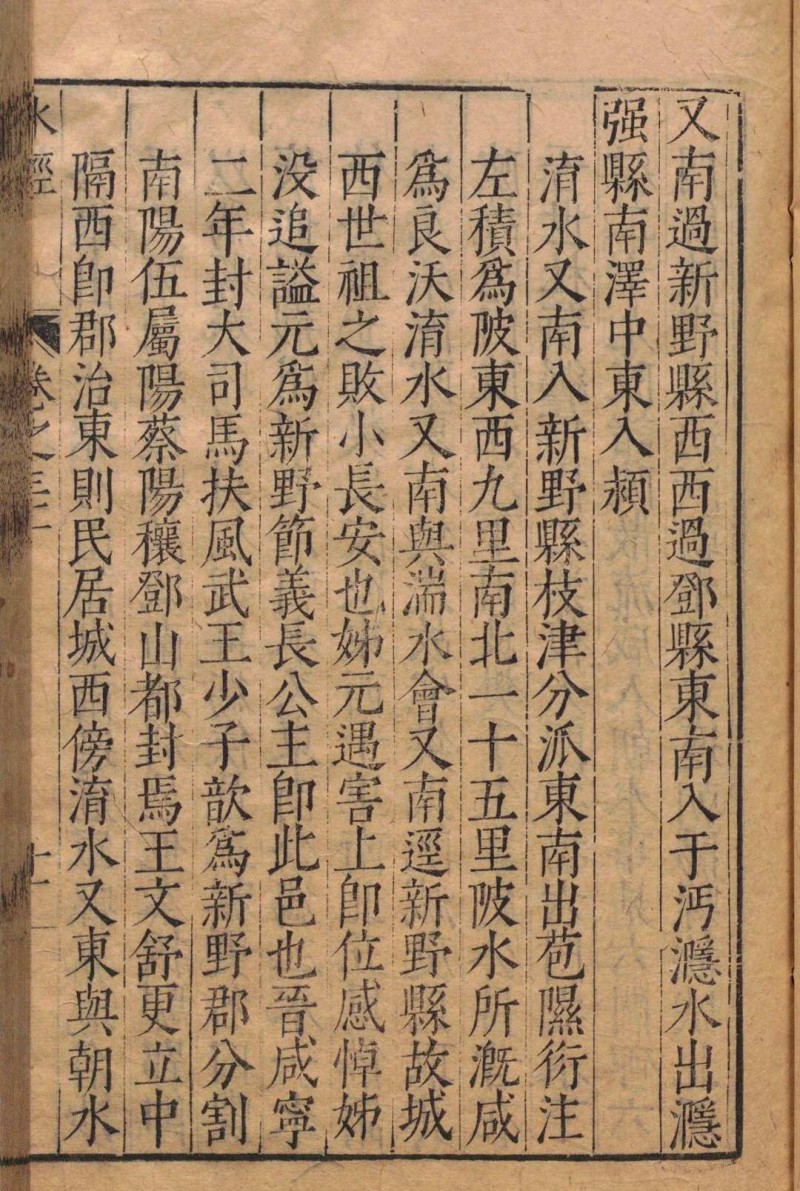 又南過新野縣西西過鄧縣東南入于沔㶏水出㶏
强縣南澤中東入潁
淯水又南入新野縣枝津分派東南出苞隰衍注
左積爲陂東西九里南北一十五里陂水所溉咸
爲良沃淯水又南與湍水會又南逕新野縣故城
西世祖之敗小長安也姊元遇害上即位感悼姊
没追謚元爲新野節義長公主即此邑也晉咸寧
二年封大司馬扶風武王少子歆爲新野郡分割
南陽伍屬陽蔡陽穰鄧山都封焉王文舒更立中
隔西即郡治東則民居城西傍淯水又東與朝水
水經 卷之三十一 十一